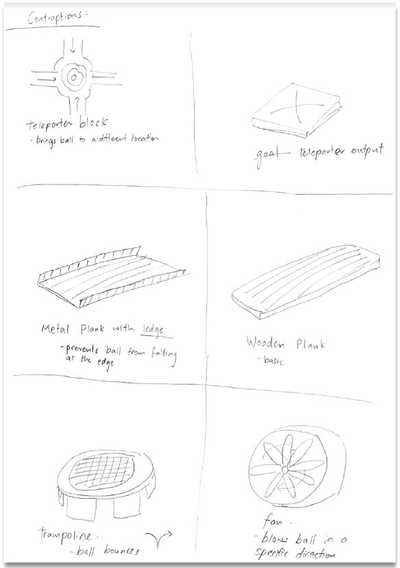 Contraptions:
Teleporter block
- brings ball to a different location
goal - teleporter output
Metal Plank with ledge
- prevents ball from falling
at the edge
Wooden Plank
- basic
trampoline.
- ball bounces
fan.
- blows ball in a
specific direction